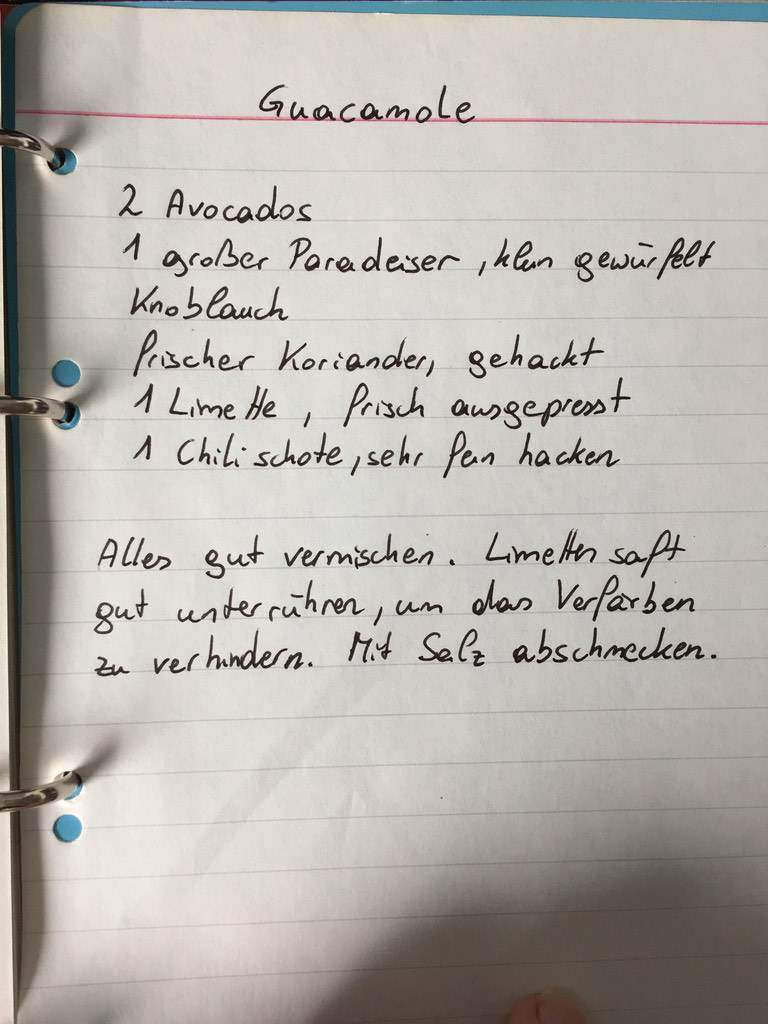 Guacamole
2 Avocados
1 großer Paradeiser, klein gewürfelt
Knoblauch
frischer Koriander, gehackt
1 Limette, frisch ausgepresst
1 Chilischote, sehr fein hacken
Alles gut vermischen. Limettensaft
gut unterrühren, um das Verfärben
zu verhindern. Mit Salz abschmecken.